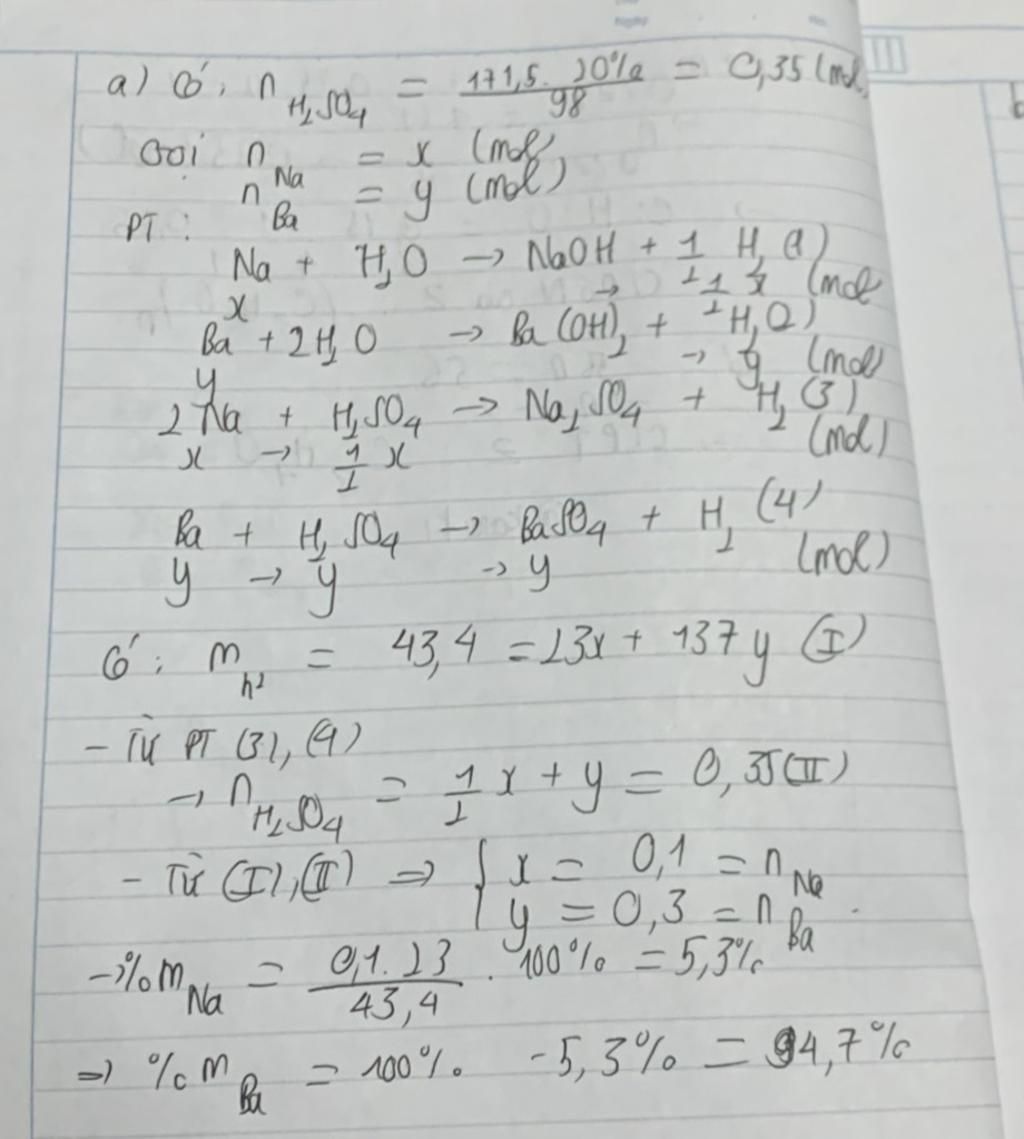 a) Có: n H₂SO₄ = 171,5. 20% / 98 = 0,35 (mol)
Gọi n Na = x (mol)
n Ba = y (mol)
PT:
Na + H₂O → NaOH + 1/2 H₂ (1)
x → 1/2 x (mol)
Ba + 2H₂O → Ba(OH)₂ + H₂(2)
y → y (mol)
2Na + H₂SO₄ → Na₂SO₄ + H₂ (3)
x → 1/2 x (mol)
Ba + H₂SO₄ → BaSO₄ + H₂ (4)
y → y → y (mol)
Có: m h² = 43,4 = 23x + 137y (I)
- Từ PT (3), (4)
→ n H₂SO₄ = 1/2 x + y = 0,35(II)
- Từ (I),(II) ⇒ { x = 0,1 = n Na
y = 0,3 = n Ba
→ %m Na = 0,1.23 / 43,4 . 100% = 5,3%
⇒ %m Ba = 100% - 5,3% = 94,7%